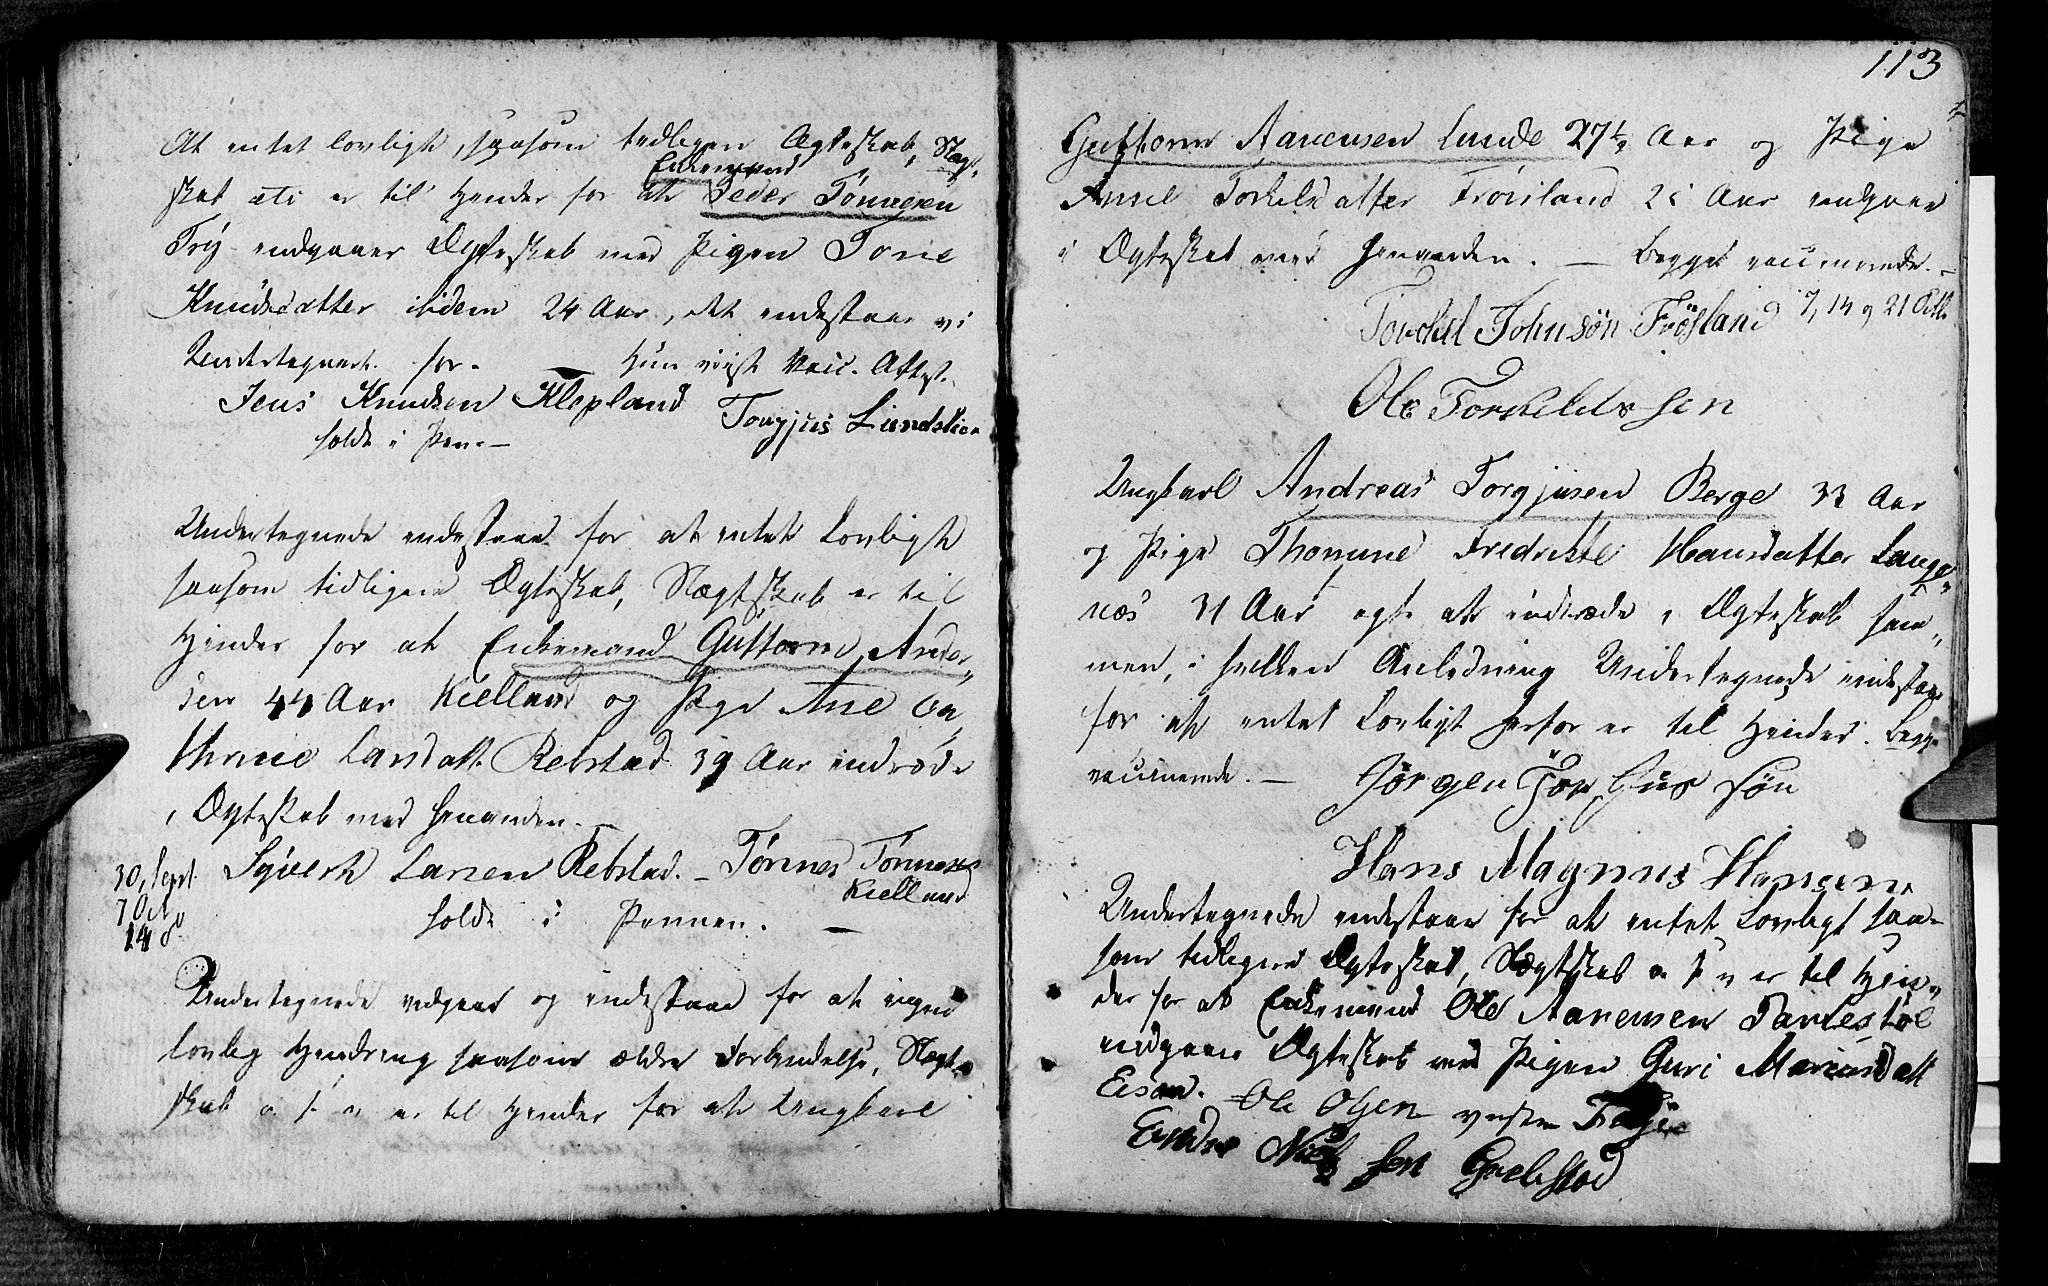 At intet lovligt, saasom tidligere Ægteskab, Slægt-
Enkemand
skab etc er til Hinder for at Peder Tønnesen
Try indgaaer Ægteskab med Pigen Tone
Knudsdatter ibidem 24 Aar, det indestaaer vi
Undertegnede for. — Hun viist Vacc. Attest.
Jens Knudsen Klepland Torgjus Lundstien
holdt i Pen. —
Undertegnede indestaae for at intet Lovligt
saasom tidligere Ægteskab, Slægtskab er til
Hinder for at Enkemand Guttorm Ander-
sen 44 Aar Kielland og Pige Ane Ca-
thrine Larsdatt. Rebstad 39 Aar indtræde
i Ægteskab med hinanden. —
30, Sept. Syvert Larsen Rebstad. — Tønnes Tønnesen
7 Oct Kielland
14 do holdt i Pennen. —
Undertegnede vedgaae og indestaae for at ingen
lovlig Hindring saasom ældre Forbindelse, Slægt-
skab o s v er til Hinder for at Ungkarl
113
Guttorm Aanensen Lunde 27½ Aar og Pige
Anne Torkelsdatter Frøisland 25 Aar indgaae
i Ægteskab med hinanden. — Begge vaccinerede. —
Torchel Johnsøn Frösland 7, 14 og 21 Octb
Ole Torkeldssen
Ungkarl Andreas Torgjusen Berge 33 Aar
og Pige Thomine Fredrikke Hansdatter Lange-
næs 31 Aar agte at indtræde i Ægteskab sam-
men, i hvilken Anledning Undertegnede indestaae
for at intet Lovligt herfor er til Hinder. Begge
vaccinerede. — Jørgen Torgius søn
Hans Magnus Hansen.
Undertegnede indestaae for at intet Lovligt saa-
som tidligere Ægteskab, Slægtskab o s v er til Hin-
der for at Enkemand Ole Aanensen
indgaaer Ægteskab med Pigen Guri
Ole Olsen
Endre Niels sen